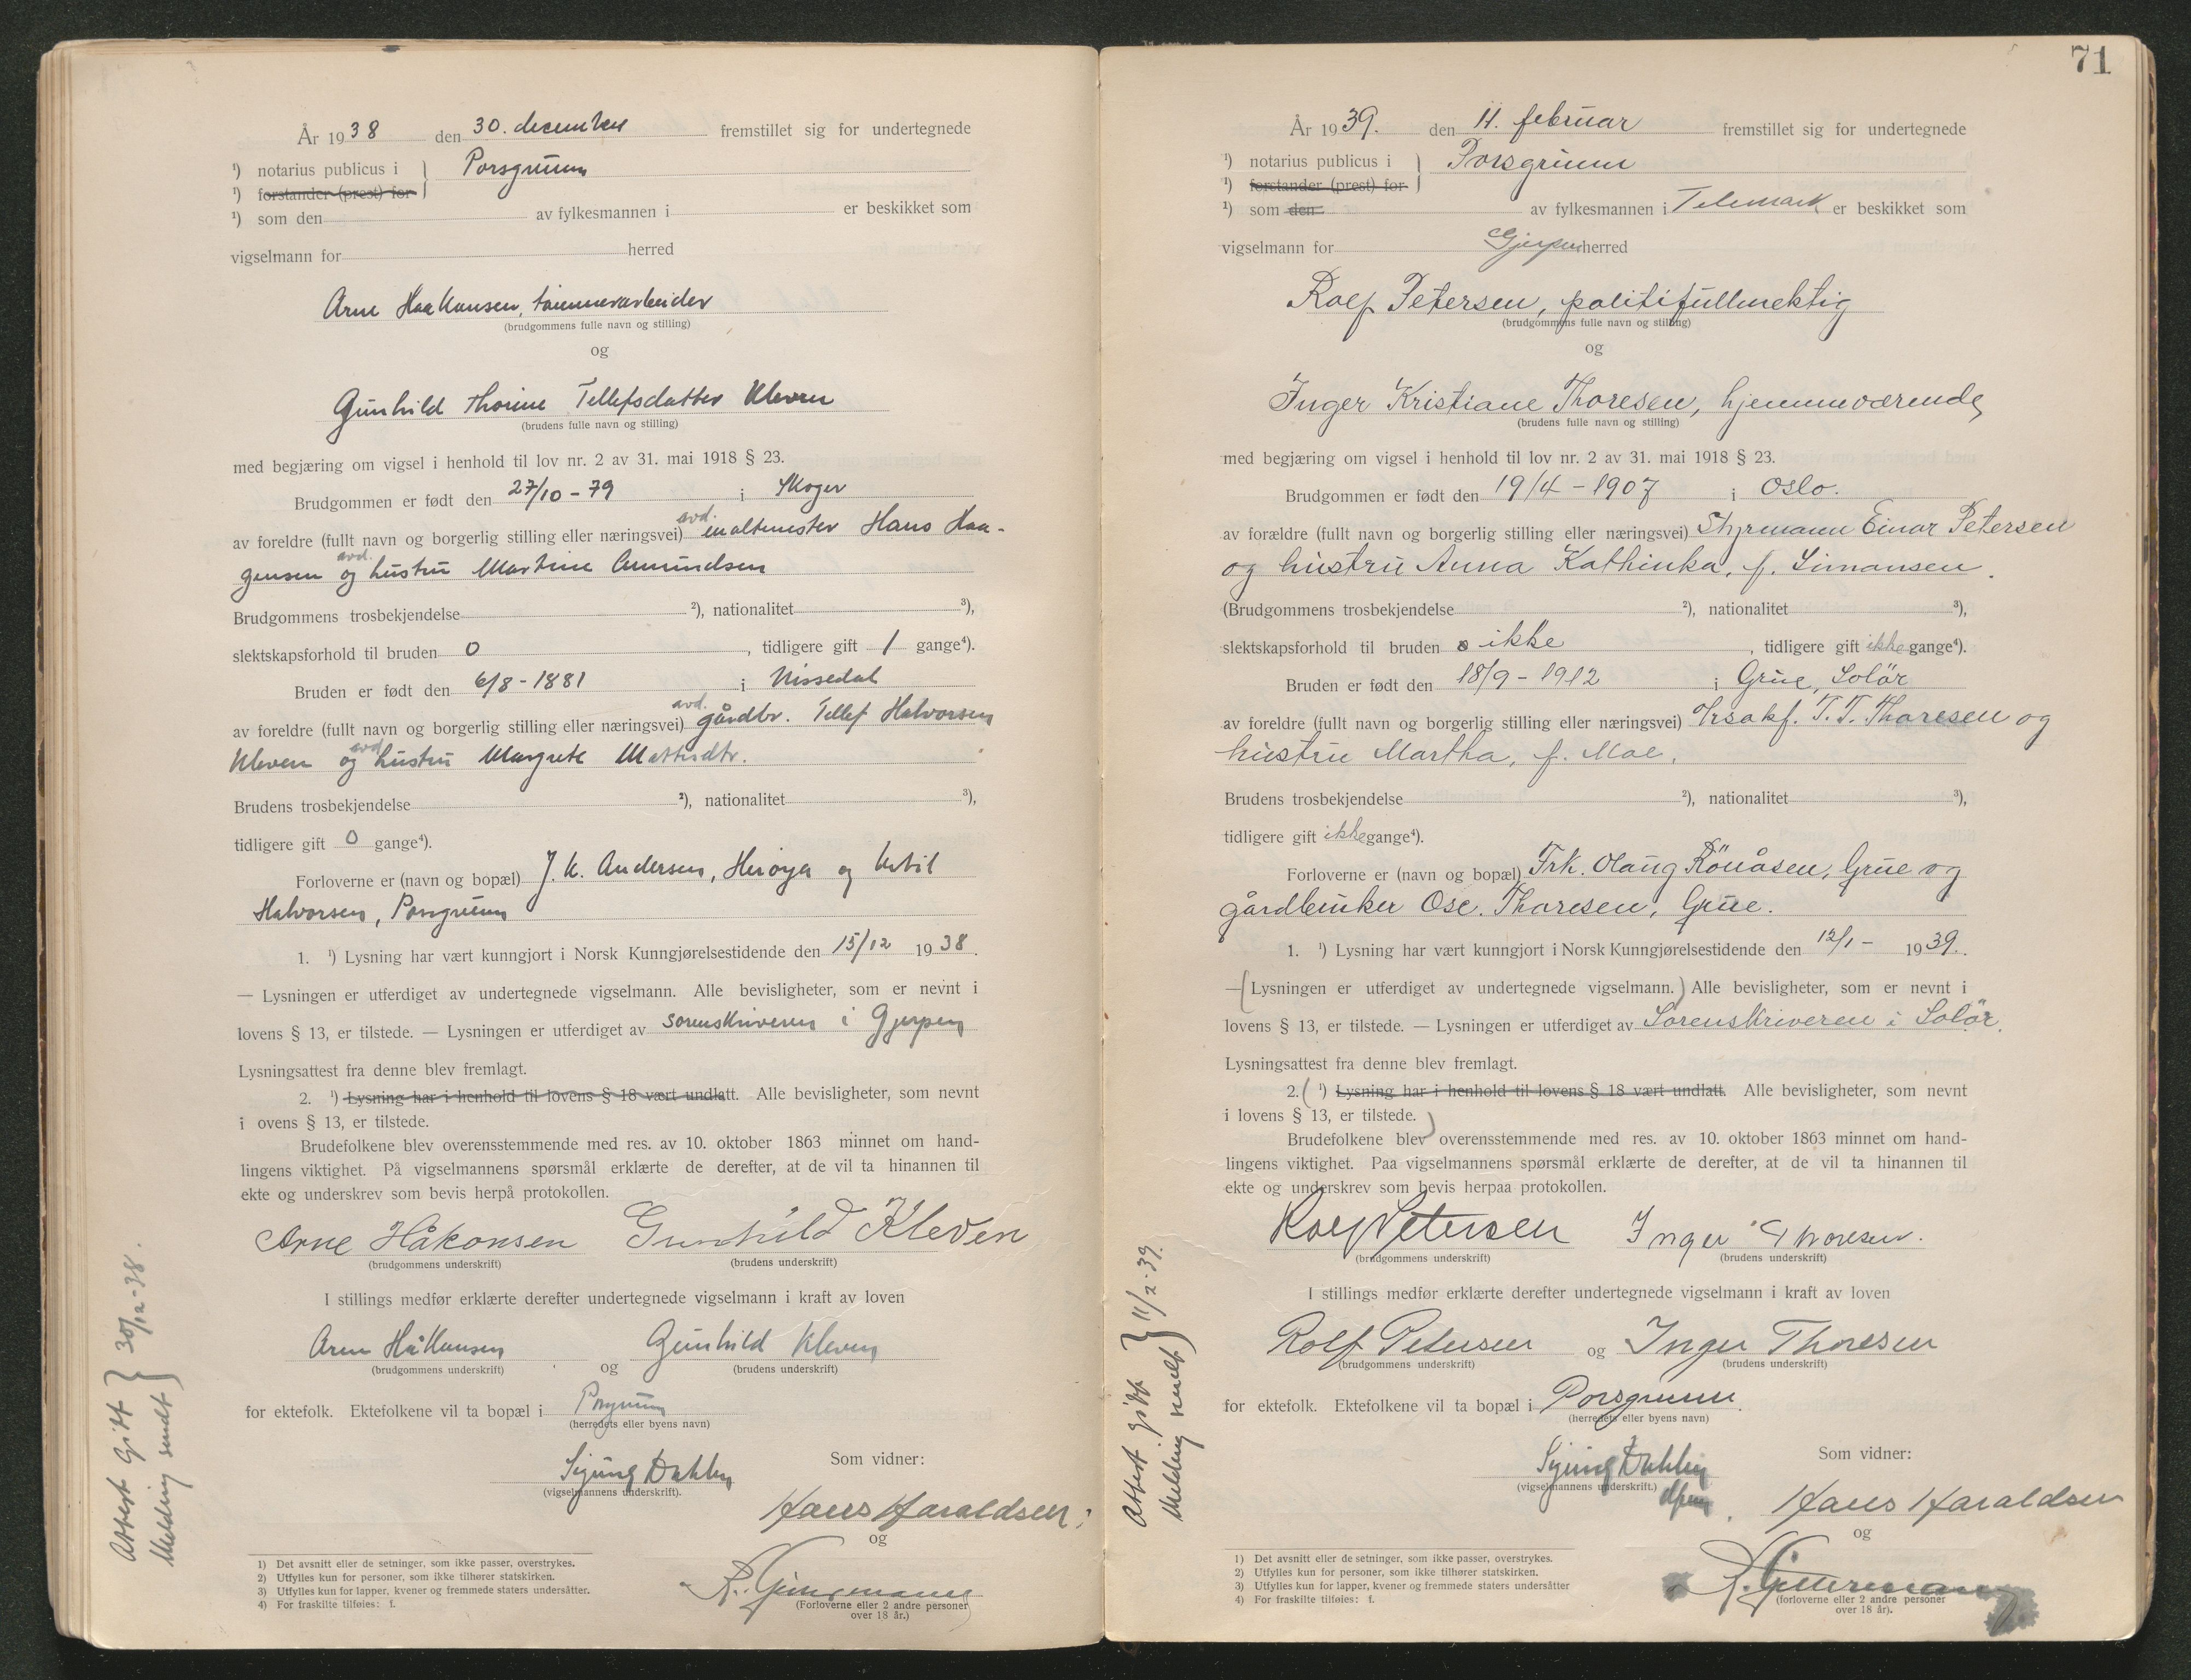 År 1938 den 30. december fremstillet sig for undertegnede
¹) notarius publicus i } Porsgrunn
¹) forstander (prest) for
¹) som den av fylkesmannen i er beskikket som
vigselmann for herred
Arne Haakonsen, tømmerarbeider
(brudgommens fulle navn og stilling)
og
Gunhild Thorine Tellefsdatter Kleven
(brudens fulle navn og stilling)
med begjæring om vigsel i henhold til lov nr. 2 av 31. mai 1918 § 23.
Brudgommen er født den 27/10 - 79 i Skoger
avd.
av foreldre (fullt navn og borgerlig stilling eller næringsvei) maltmester Hans Haa-
avd.
gensen og hustru Martine Amundsen
Brudgommens trosbekjendelse ²), nationalitet ³),
slektskapsforhold til bruden 0, tidligere gift 1 gange⁴).
Bruden er født den 6/8 - 1881 i Nissedal
avd.
av foreldre (fullt navn og borgerlig stilling eller næringsvei) gårdbr. Tellef Halvorsen
avd.
Kleven og hustru Margrete Mattisdtr.
Brudens trosbekjendelse ²), nationalitet ³),
tidligere gift 0 gange⁴).
Forloverne er (navn og bopæl) J. K. Andersen, Herøya og Ketil
Halvorsen, Porsgrunn
1. ¹) Lysning har vært kunngjort i Norsk Kunngjørelsestidende den 15/12 1938.
— Lysningen er utferdiget av undertegnede vigselmann. Alle bevisligheter, som er nevnt i
lovens § 13, er tilstede. — Lysningen er utferdiget av sorenskriveren i Gjerpen
Lysningsattest fra denne blev fremlagt.
2. ¹) Lysning har i henhold til lovens § 18 vært undlatt. Alle bevisligheter, som nevnt
i ovens § 13, er tilstede.
Brudefolkene blev overensstemmende med res. av 10. oktober 1863 minnet om hand-
lingens viktighet. På vigselmannens spørsmål erklærte de derefter, at de vil ta hinannen til
ekte og underskrev som bevis herpå protokollen.
Arne Håkonsen Gunhild Kleven
(brudgommens underskrift) (brudens underskrift)
I stillings medfør erklærte derefter undertegnede vigselmann i kraft av loven
Arne Håkonsen og Gunhild Kleven
(brudgommens underskrift) (brudens underskrift)
for ektefolk. Ektefolkene vil ta bopæl i Porsgrunn
(herredets eller byens navn)
Som vidner:
Sigurd Dahlen
(vigselmannens underskrift).
Hans Haraldsen
og
(Forloverne eller 2 andre personer
over 18 år.)
1) Det avsnitt eller de setninger, som ikke passer, overstrykes.
2) Utfylles kun for personer, som ikke tilhører statskirken.
3) Utfylles kun for lapper, kvener og fremmede staters undersåtter.
4) For fraskilte tilføies: f.
Attest gitt } 30/12-38.
Melding sendt
71
År 1939. den 11. februar fremstillet sig for undertegnede
¹) notarius publicus i } Porsgrunn
¹) forstander (prest) for
¹) som den av fylkesmannen i Telemark er beskikket som
vigselmann for Gjerpen herred
Rolf Petersen, politifullmektig
(brudgommens fulle navn og stilling)
og
Inger Kristiane Thoresen, hjemmeværende
(brudens fulle navn og stilling)
med begjæring om vigsel i henhold til lov nr. 2 av 31. mai 1918 § 23.
Brudgommen er født den 19/4 - 1907 i Oslo.
av forældre (fullt navn og borgerlig stilling eller næringsvei) Styrmann Einar Petersen
og hustru Anna Kathinka, f. Simansen.
(Brudgommens trosbekjendelse ²), nationalitet ³),
slektskapsforhold til bruden ikke, tidligere gift ikke gange⁴).
Bruden er født den 18/9 - 1912 i Grue, Solør
av foreldre (fullt navn og borgerlig stilling eller næringsvei) O.r.sakf. T. T. Thoresen og
hustru Martha, f. Moe.
Brudens trosbekjendelse ²), nationalitet ³),
tidligere gift ikke gange⁴).
Forloverne er (navn og bopæl) Frk. Olaug Rönåsen, Grue og
gårdbruker Osc. Thoresen, Grue.
1. ¹) Lysning har vært kunngjort i Norsk Kunngjørelsestidende den 12/1 - 1939.
— (Lysningen er utferdiget av undertegnede vigselmann.) Alle bevisligheter, som er nevnt i
lovens § 13, er tilstede. — Lysningen er utferdiget av Sorenskriveren i Solør.
Lysningsattest fra denne blev fremlagt.
2. (¹) Lysning har i henhold til lovens § 18 vært undlatt. Alle bevisligheter, som nevnt
i lovens § 13, er tilstede.)
Brudefolkene blev overensstemmende med res. av 10. oktober 1863 minnet om hand-
lingens viktighet. Paa vigselmannens spørsmål erklærte de derefter, at de vil ta hinannen til
ekte og underskrev som bevis herpaa protokollen.
Rolf Petersen Inger Thoresen.
(brudgommens underskrift) (brudens underskrift)
I stillings medfør erklærte derefter undertegnede vigselmann i kraft av loven
Rolf Petersen og Inger Thoresen
(brudgommens underskrift) (brudens underskrift)
for ektefolk. Ektefolkene vil ta bopæl i Porsgrunn.
(herredets eller byens navn)
Som vidner:
Sigurd Dahlen
(vigselmannens underskrift.)
Hans Haraldsen
og
(forloverne eller 2 andre personer
over 18 år).
1) Det avsnitt eller de setninger, som ikke passer, overstrykes.
2) Utfylles kun for personer, som ikke tilhører statskirken.
3) Utfylles kun for lapper, kvener og fremmede staters undersåtter
4) For fraskilte tilføies: f.
Attest gitt } 11/2-39.
Melding sendt